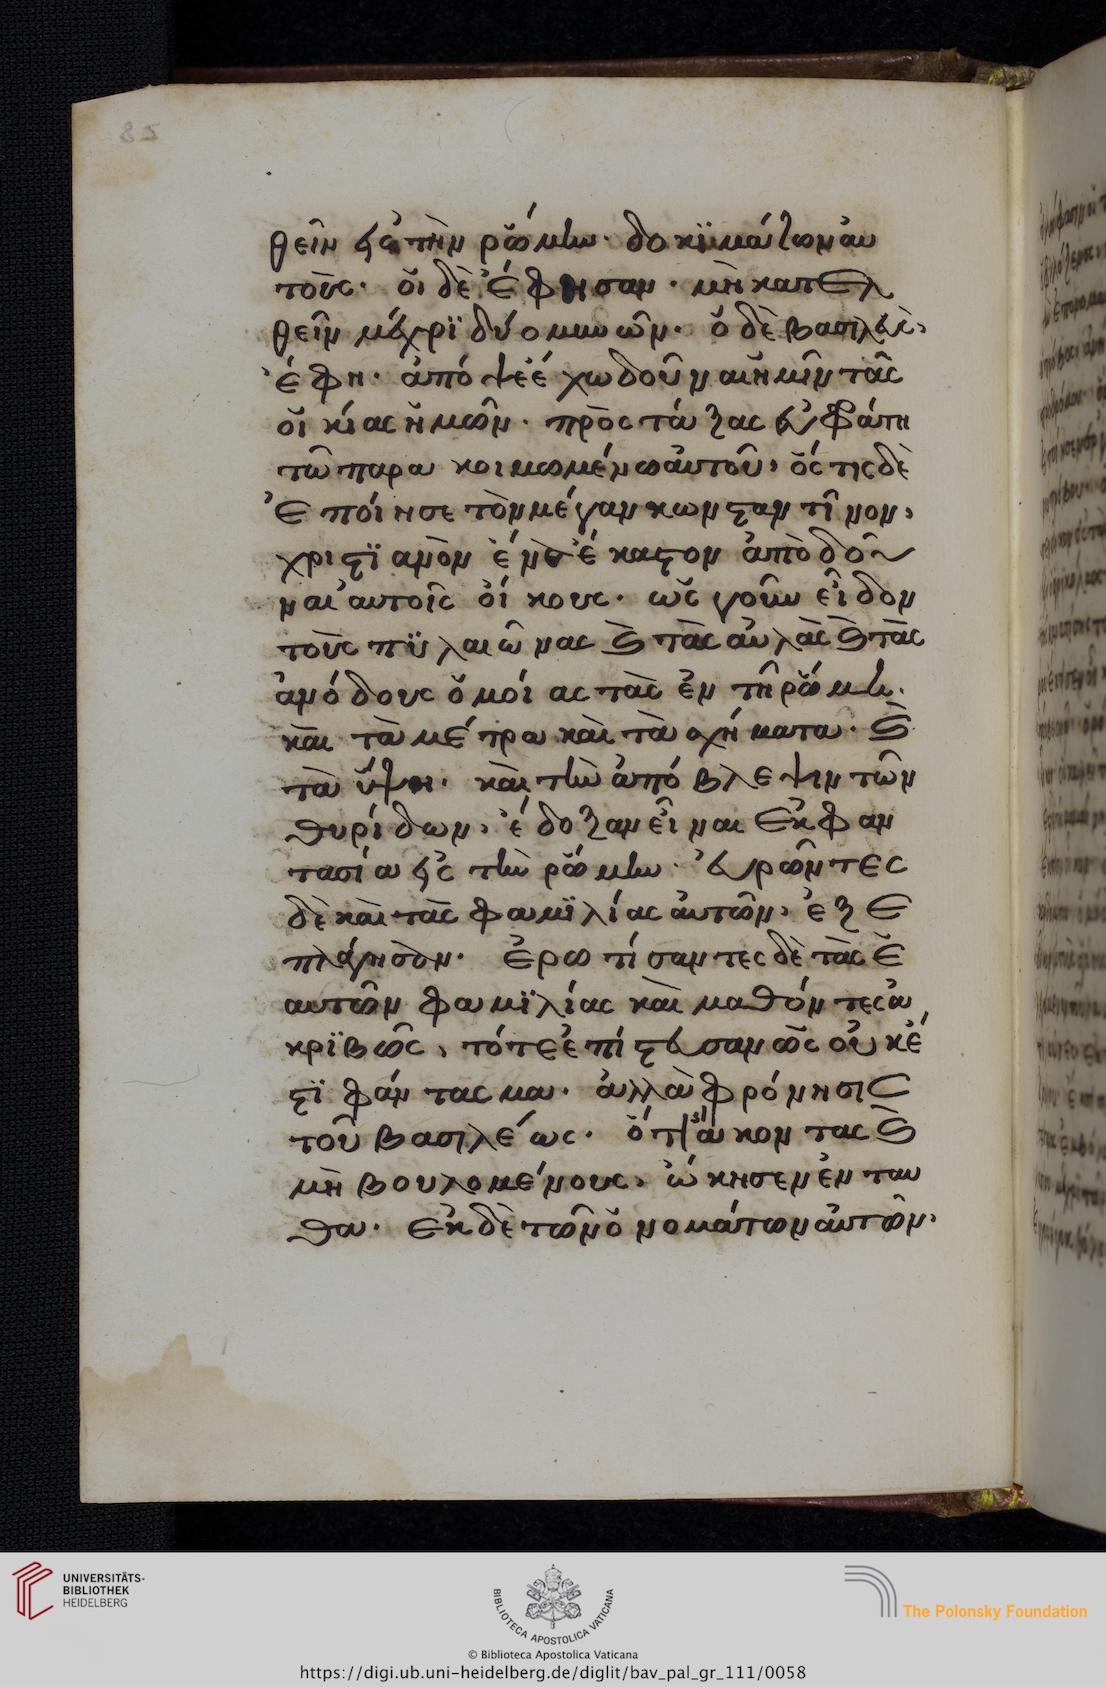 85
θεῖν εἰς τὴν ῥώμην· δοκϊμάζων αὐ
τοὺς· οἱ δὲ ἔφησαν· μὴ κατελ
θεῖν μέχρϊ δύο μηνῶν· ὁ δὲ βασιλεὺς,
ἔφη· ἀπόψε ἔχω δοῦναι ἡμῖν τὰς
οἰκίας ἡμῶν· προστάξας εὐφράτη
τῶ παρακοιμωμένω αὐτοῦ, ὅς τις δὲ
ἐποίησε τὸν μέγαν κωνσταντῖνον,
χριστϊανὸν ἕνα ἕκαστον ἀποδοῦ
ναι αὐτοῖς οἴκους· ὡς γοῦν εἶδον
τοὺς πϋλαιῶνας καὶ τὰς αὐλὰς καὶ τὰς
ἀνόδους ὁμοίας τὰς ἐν τῆ ῥώμη·
καὶ τὰ μέτρα καὶ τὰ σχήματα· καὶ
τὰ ὕψη· καὶ τὴν ἀπόβλεψιν τῶν
θυρίδων, ἔδοξαν εἶναι ἐκ φαν
τασίας εἰς τὴν ῥώμην· εὑρῶντες
δὲ καὶ τὰς φαμϊλίας αὐτῶν, ἐξε
πλάγησαν· ἐρωτίσαντες δὲ τὰς ἑ
αυτῶν φαμϊλίας καὶ μαθόντες ἀ
κρϊβῶς, τότε ἐπίστευσαν ὡς οὐκ ἔ
στϊ φάντασμα· ἀλλὰ φρόνησις
τοῦ βασιλέως· ὅτι ἄκοντας καὶ
μὴ βουλομένους, ὤκησεν ἐνταυ
θα· ἐκ δὲ τῶν ὀνομάτων αὐτῶν,
UNIVERSITÄTS-
BIBLIOTHEK
HEIDELBERG
BIBLIOTECA APOSTOLICA VATICANA
The Polonsky Foundation
© Biblioteca Apostolica Vaticana
https://digi.ub.uni-heidelberg.de/diglit/bav_pal_gr_111/0058